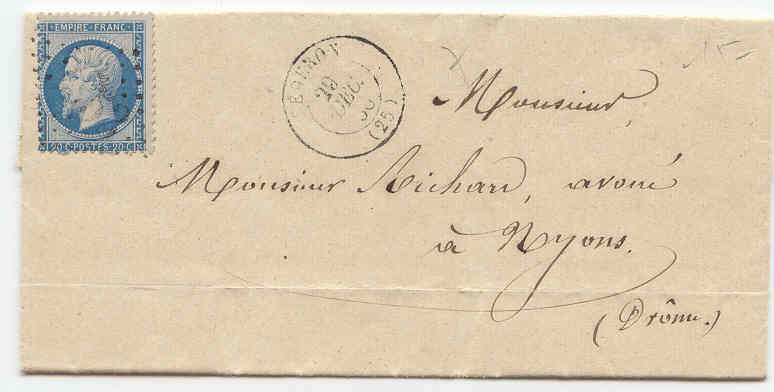 EMPIRE FRANC
20 C POSTES 20 C
29
DEC.
(25)
Monsieur,
Monsieur Richard, avoué
à Nyons.
(Drôme.)